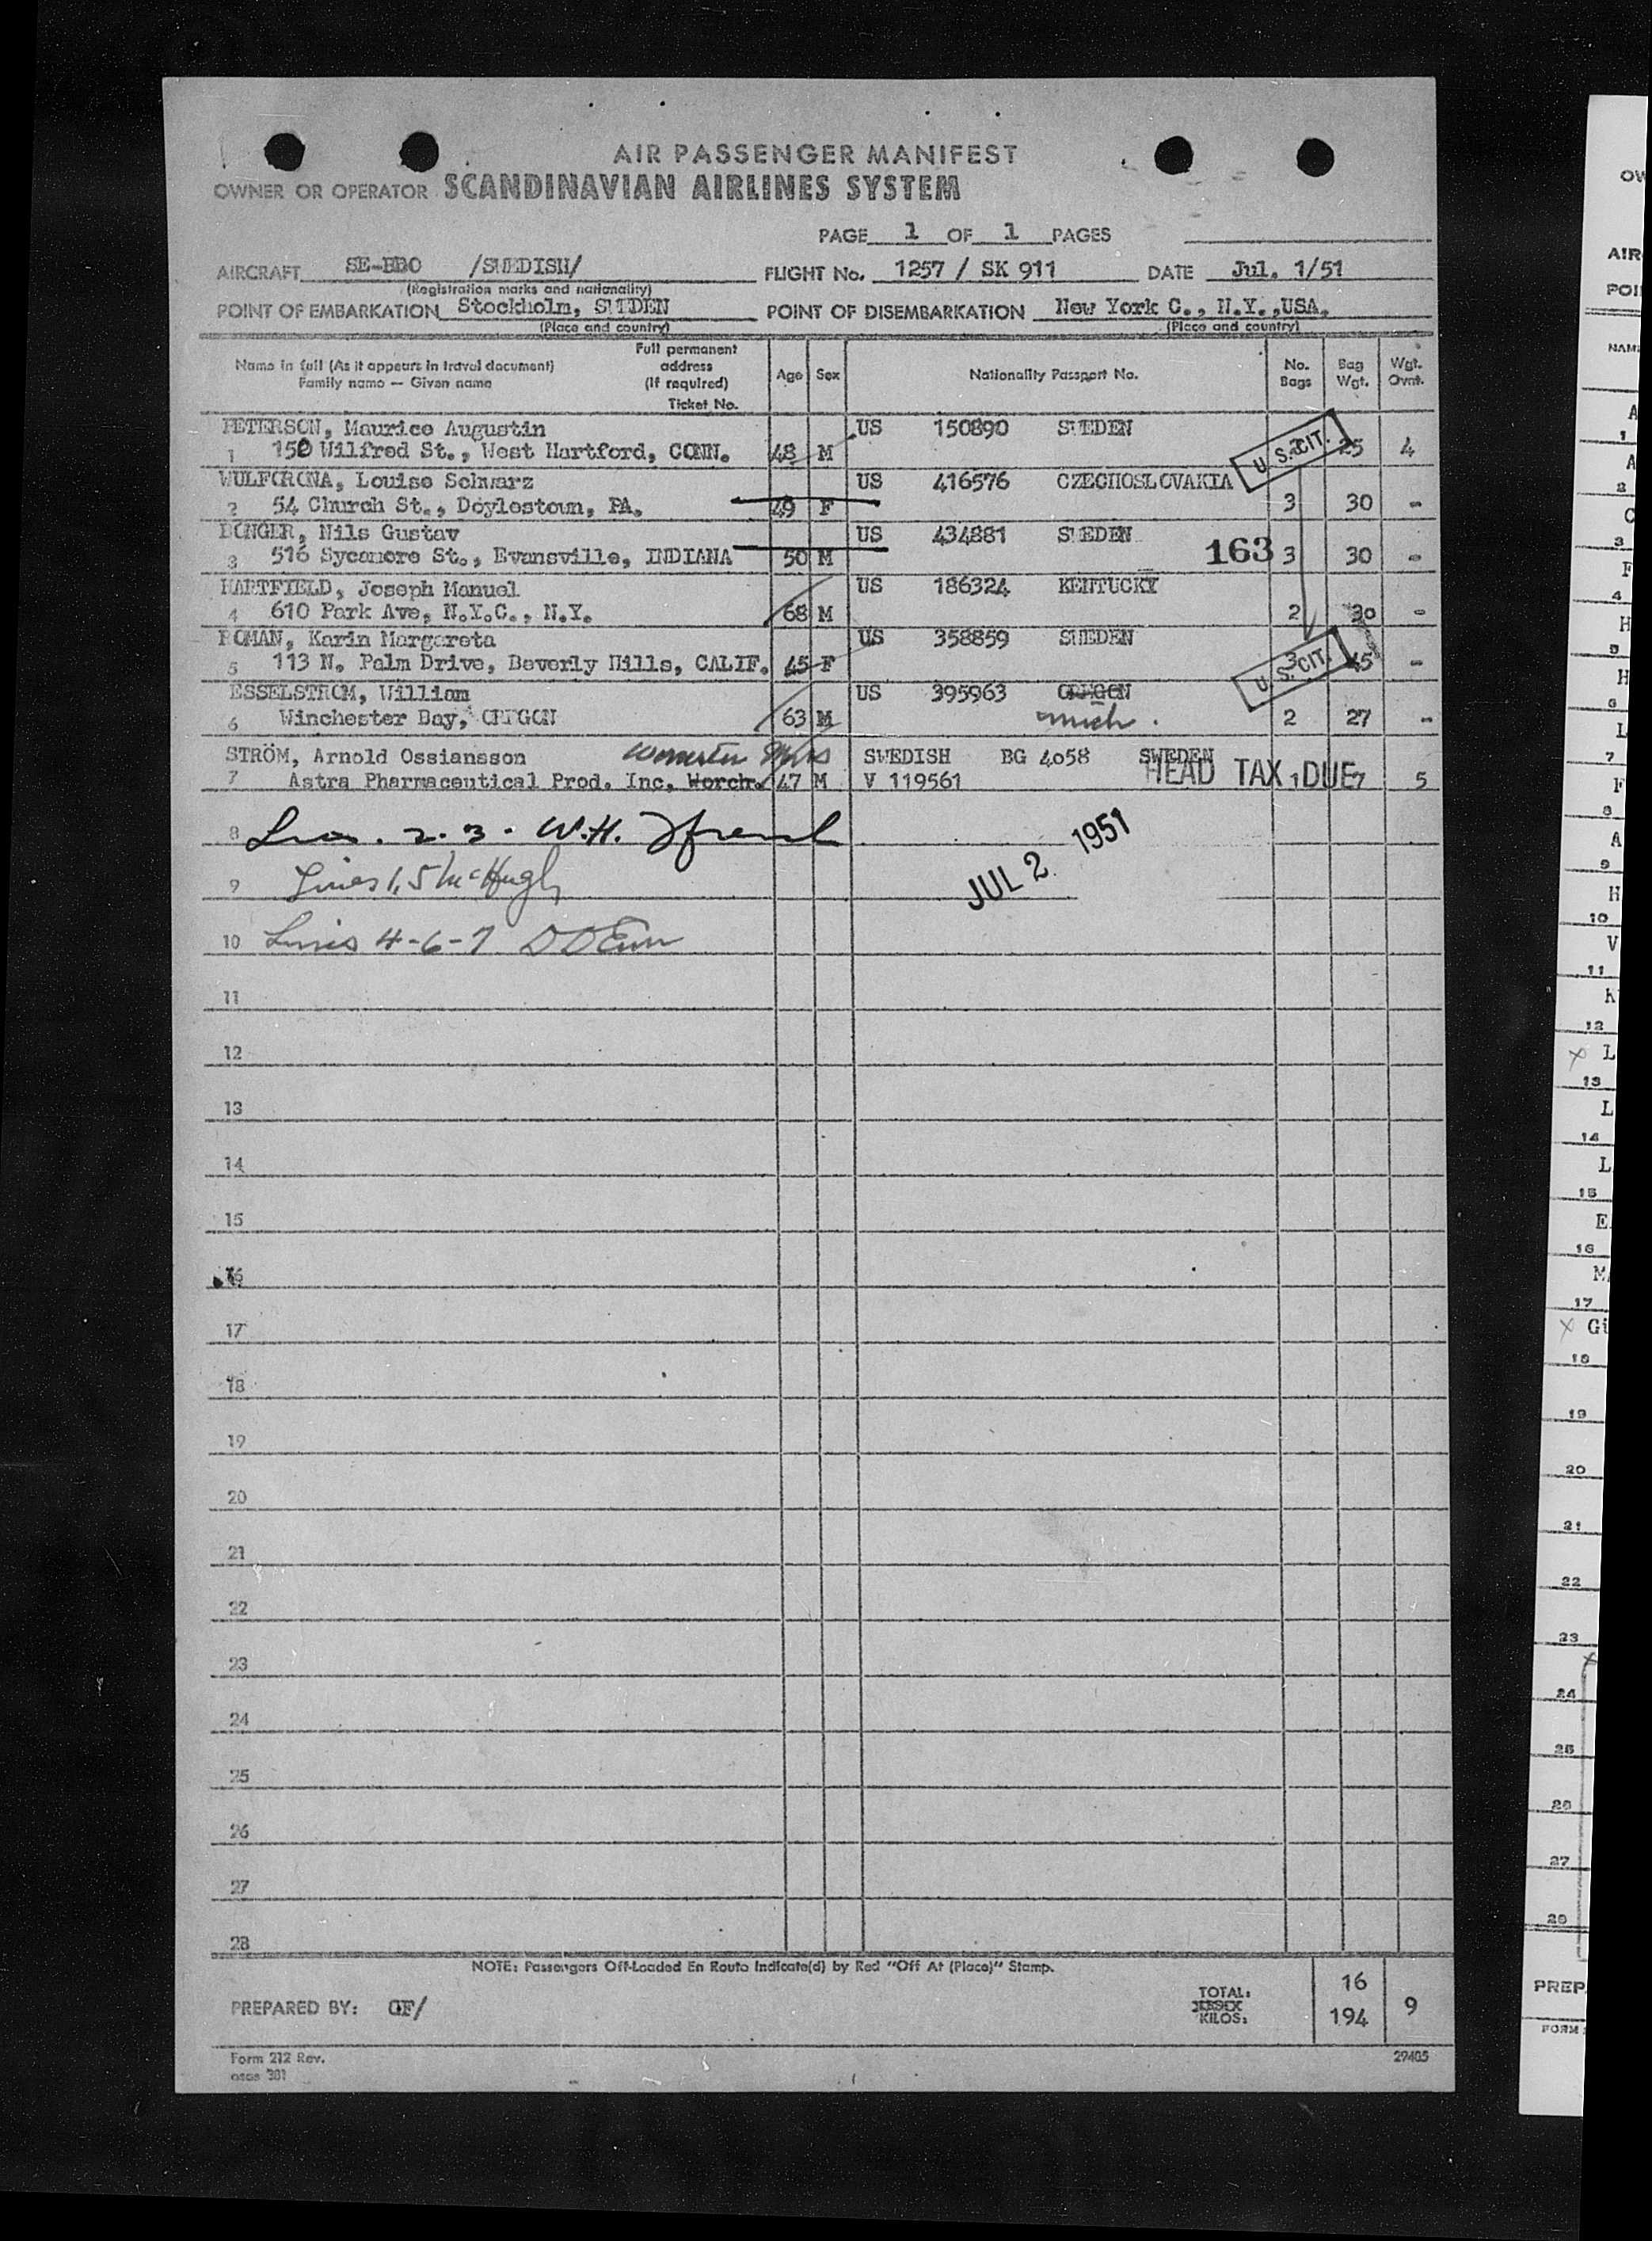 AIR PASSENGER MANIFEST
OWNER OR OPERATOR SCANDINAVIAN AIRLINES SYSTEM
PAGE 1 OF 1 PAGES
AIRCRAFT SE-BBO /SWEDISH/ FLIGHT No. 1257 / SK 911 DATE Jul. 1/51
(Registration marks and nationality)
POINT OF EMBARKATION Stockholm, SWEDEN POINT OF DISEMBARKATION New York C., N.Y.,USA.
(Place and country) (Place and country)
Name in full (As it appears in travel document) Family name — Given name Full permanent address (If required) Ticket No. Age Sex Nationality Passport No. No. Bags Bag Wgt. Wgt. Ovnt.
PETERSON, Maurice Augustin US 150890 SWEDEN
1 150 Wilfred St., West Hartford, CONN. 48 M U.S. CIT. 25 4
WULFCRONA, Louise Schwarz US 416576 CZECHOSLOVAKIA
2 54 Church St., Doylestown, PA. 49 F 3 30 -
BONGER, Nils Gustav US 434881 SWEDEN
3 516 Sycamore St., Evansville, INDIANA 50 M 163 3 30 -
HARTFIELD, Joseph Manuel US 186324 KENTUCKY
4 610 Park Ave, N.Y.C., N.Y. 68 M 2 30 -
ROMAN, Karin Margareta US 358859 SWEDEN
5 113 N. Palm Drive, Beverly Hills, CALIF. 45 F U.S. CIT. 3 45 -
ESSELSTROM, William US 395963 OREGON
6 Winchester Bay, OREGON 63 M mich. 2 27 -
STRÖM, Arnold Ossiansson Worcester Mass SWEDISH BG 4058 SWEDEN
7 Astra Pharmaceutical Prod. Inc, Worch. 47 M V 119561 HEAD TAX DUE 1 7 5
8 2. 3. W.H.
JUL 2 1951
9 Lines 1, 5 McHugh
10 Lines 4-6-7
11
12
13
14
15
16
17
18
19
20
21
22
23
24
25
26
27
28
NOTE: Passengers Off-Loaded En Route Indicate(d) by Red "Off At (Place)" Stamp.
PREPARED BY: GF/ TOTAL: KILOS: 16 194 9
Form 212 Rev. 29405
osas 301